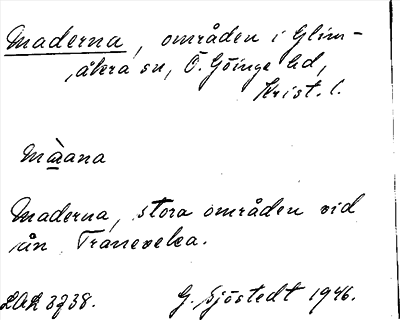 Maderna, områden i Glim-
åkra sn, Ö. Göinge hd,
Krist. l.
Màana
Maderna, stora områden vid
ån Tranevela.
LAL 3738. G. Sjöstedt 1946.